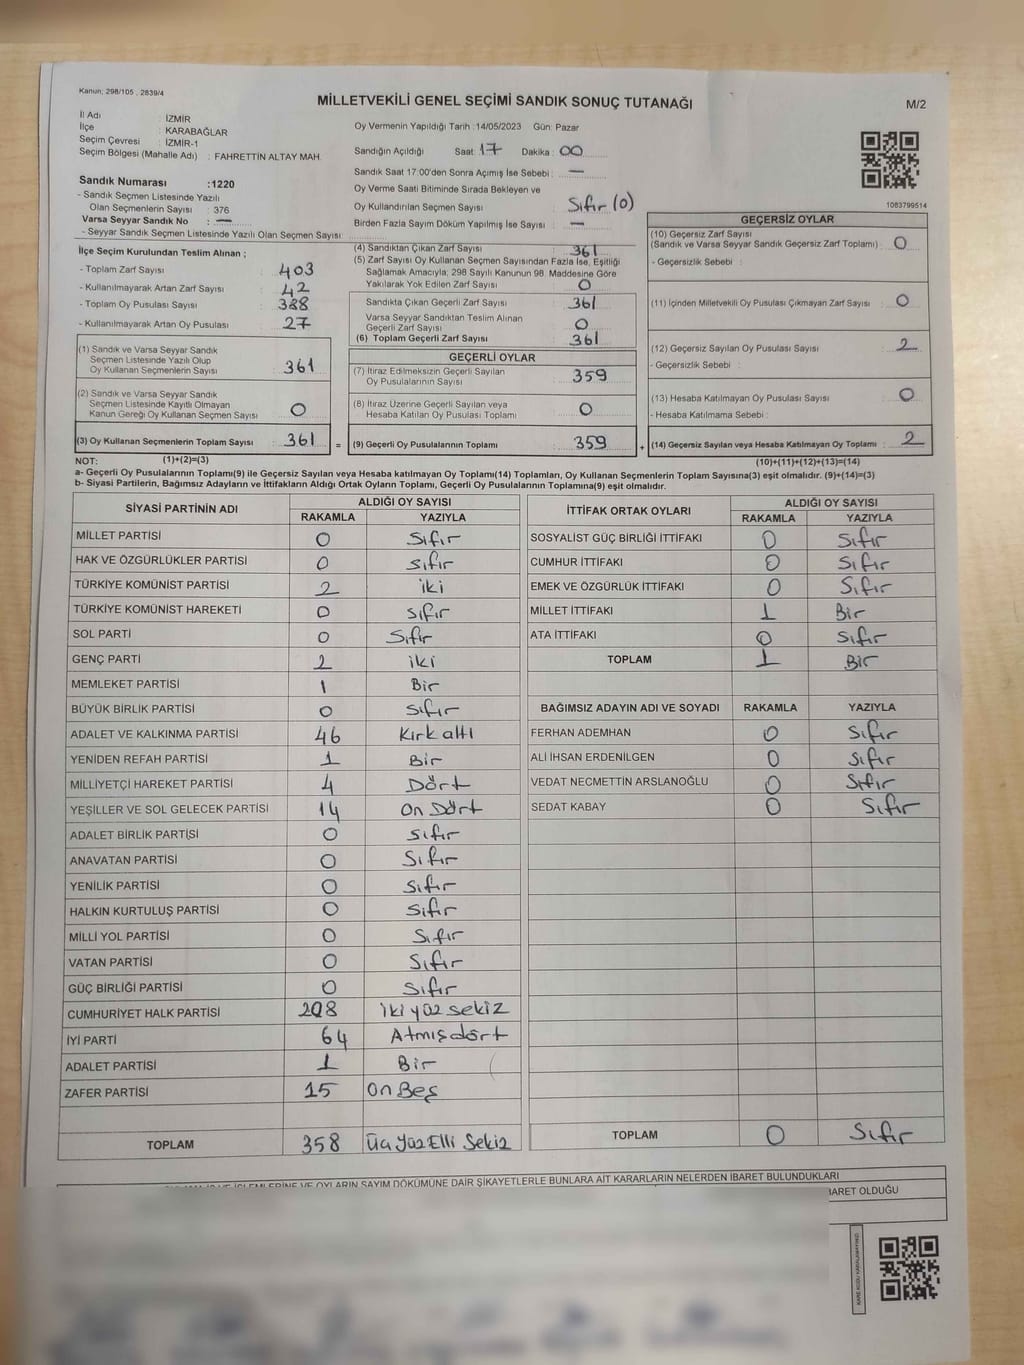 Kanun; 298/105 , 2839/4
MİLLETVEKİLİ GENEL SEÇİMİ SANDIK SONUÇ TUTANAĞI
M/2
İl Adı : İZMİR
İlçe : KARABAĞLAR
Seçim Çevresi : İZMİR-1
Seçim Bölgesi (Mahalle Adı) : FAHRETTİN ALTAY MAH.
Sandık Numarası :1220
- Sandık Seçmen Listesinde Yazılı
Olan Seçmenlerin Sayısı : 376
Varsa Seyyar Sandık No : —
- Seyyar Sandık Seçmen Listesinde Yazılı Olan Seçmen Sayısı:
Oy Vermenin Yapıldığı Tarih :14/05/2023 Gün: Pazar
Sandığın Açıldığı Saat: 17 Dakika : 00
Sandık Saat 17:00'den Sonra Açımış İse Sebebi : —
Oy Verme Saati Bitiminde Sırada Bekleyen ve
Oy Kullandırılan Seçmen Sayısı : Sıfır (0)
Birden Fazla Sayım Döküm Yapılmış İse Sayısı : —
1083799514
İlçe Seçim Kurulundan Teslim Alınan ;
- Toplam Zarf Sayısı : 403
- Kullanılmayarak Artan Zarf Sayısı : 42
- Toplam Oy Pusulası Sayısı : 388
- Kullanılmayarak Artan Oy Pusulası : 27
(1) Sandık ve Varsa Seyyar Sandık
Seçmen Listesinde Yazılı Olup
Oy Kullanan Seçmenlerin Sayısı : 361
(2) Sandık ve Varsa Seyyar Sandık
Seçmen Listesinde Kayıtlı Olmayan
Kanun Gereği Oy Kullanan Seçmen Sayısı : 0
(3) Oy Kullanan Seçmenlerin Toplam Sayısı : 361 =
(4) Sandıktan Çıkan Zarf Sayısı : 361
(5) Zarf Sayısı Oy Kullanan Seçmen Sayısından Fazla İse, Eşitliği
Sağlamak Amacıyla; 298 Sayılı Kanunun 98. Maddesine Göre
Yakılarak Yok Edilen Zarf Sayısı : 0
Sandıkta Çıkan Geçerli Zarf Sayısı : 361
Varsa Seyyar Sandıktan Teslim Alınan
Geçerli Zarf Sayısı : 0
(6) Toplam Geçerli Zarf Sayısı : 361
GEÇERLİ OYLAR
(7) İtiraz Edilmeksizin Geçerli Sayılan
Oy Pusulalarının Sayısı : 359
(8) İtiraz Üzerine Geçerli Sayılan veya
Hesaba Katılan Oy Pusulası Toplamı : 0
(9) Geçerli Oy Pusulalarının Toplamı : 359 +
GEÇERSİZ OYLAR
(10) Geçersiz Zarf Sayısı
(Sandık ve Varsa Seyyar Sandık Geçersiz Zarf Toplamı) : 0
- Geçersizlik Sebebi :
(11) İçinden Milletvekili Oy Pusulası Çıkmayan Zarf Sayısı : 0
(12) Geçersiz Sayılan Oy Pusulası Sayısı : 2
- Geçersizlik Sebebi :
(13) Hesaba Katılmayan Oy Pusulası Sayısı : 0
- Hesaba Katılmama Sebebi :
(14) Geçersiz Sayılan veya Hesaba Katılmayan Oy Toplamı : 2
NOT: (1)+(2)=(3) (10)+(11)+(12)+(13)=(14)
a- Geçerli Oy Pusulalarının Toplamı(9) ile Geçersiz Sayılan veya Hesaba katılmayan Oy Toplamı(14) Toplamları, Oy Kullanan Seçmenlerin Toplam Sayısına(3) eşit olmalıdır. (9)+(14)=(3)
b- Siyasi Partilerin, Bağımsız Adayların ve İttifakların Aldığı Ortak Oyların Toplamı, Geçerli Oy Pusulalarının Toplamına(9) eşit olmalıdır.
SİYASİ PARTİNİN ADI ALDIĞI OY SAYISI
RAKAMLA YAZIYLA
MİLLET PARTİSİ 0 Sıfır
HAK VE ÖZGÜRLÜKLER PARTİSİ 0 Sıfır
TÜRKİYE KOMÜNİST PARTİSİ 2 iki
TÜRKİYE KOMÜNİST HAREKETİ 0 Sıfır
SOL PARTİ 0 Sıfır
GENÇ PARTİ 2 iki
MEMLEKET PARTİSİ 1 Bir
BÜYÜK BİRLİK PARTİSİ 0 Sıfır
ADALET VE KALKINMA PARTİSİ 46 Kırk altı
YENİDEN REFAH PARTİSİ 1 Bir
MİLLİYETÇİ HAREKET PARTİSİ 4 Dört
YEŞİLLER VE SOL GELECEK PARTİSİ 14 On Dört
ADALET BİRLİK PARTİSİ 0 Sıfır
ANAVATAN PARTİSİ 0 Sıfır
YENİLİK PARTİSİ 0 Sıfır
HALKIN KURTULUŞ PARTİSİ 0 Sıfır
MİLLİ YOL PARTİSİ 0 Sıfır
VATAN PARTİSİ 0 Sıfır
GÜÇ BİRLİĞİ PARTİSİ 0 Sıfır
CUMHURİYET HALK PARTİSİ 208 iki yüz sekiz
İYİ PARTİ 64 Atmışdört
ADALET PARTİSİ 1 Bir
ZAFER PARTİSİ 15 On Beş
TOPLAM 358 Üç Yüz Elli Sekiz
İTTİFAK ORTAK OYLARI ALDIĞI OY SAYISI
RAKAMLA YAZIYLA
SOSYALİST GÜÇ BİRLİĞİ İTTİFAKI 0 Sıfır
CUMHUR İTTİFAKI 0 Sıfır
EMEK VE ÖZGÜRLÜK İTTİFAKI 0 Sıfır
MİLLET İTTİFAKI 1 Bir
ATA İTTİFAKI 0 Sıfır
TOPLAM 1 Bir
BAĞIMSIZ ADAYIN ADI VE SOYADI RAKAMLA YAZIYLA
FERHAN ADEMHAN 0 Sıfır
ALİ İHSAN ERDENİLGEN 0 Sıfır
VEDAT NECMETTİN ARSLANOĞLU 0 Sıfır
SEDAT KABAY 0 Sıfır
TOPLAM 0 Sıfır
İŞLEMLERİNE VE OYLARIN SAYIM DÖKÜMÜNE DAİR ŞİKAYETLERLE BUNLARA AİT KARARLARIN NELERDEN İBARET BULUNDUKLARI
İBARET OLDUĞU